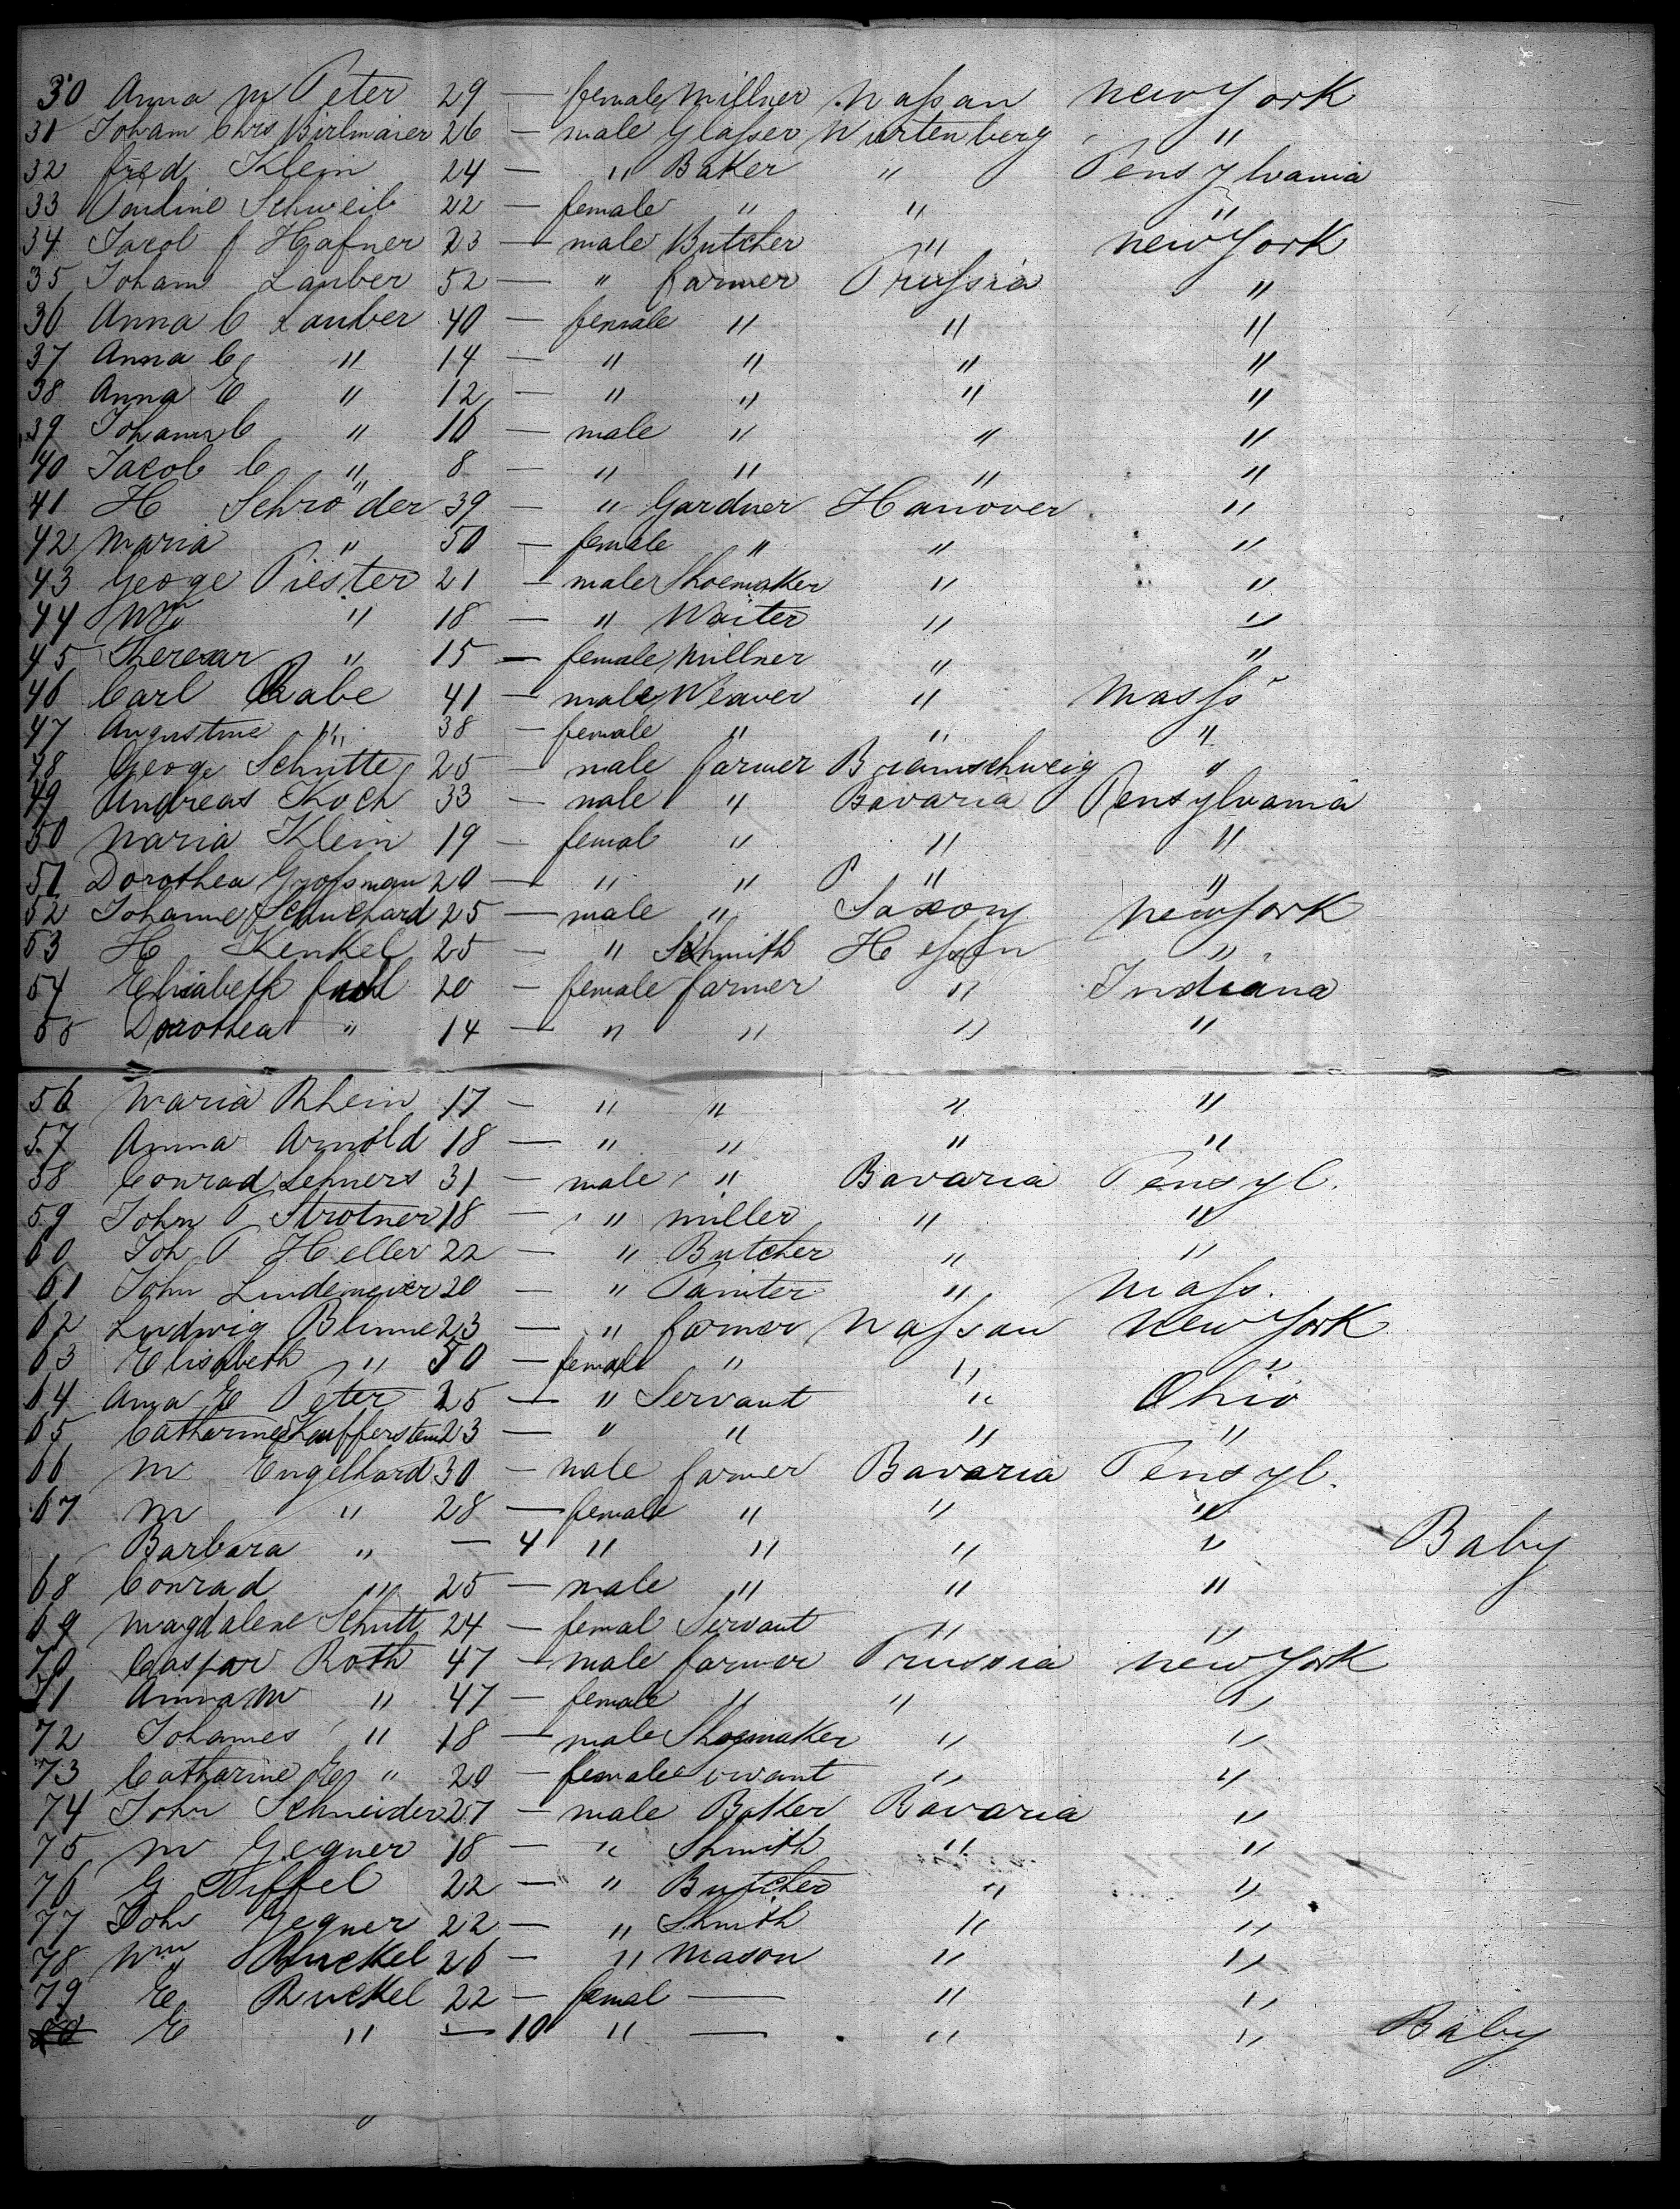 30 Anna M Peter 29 — female Millner Nassau New York
31 Joham Chrs Birlmaier 26 — male Glasser Wurtenberg "
32 fred. Klein 24 — " Baker " Pensylvania
33 Pauline Schweib 22 — female " " "
34 Jacob f Hafner 23 — male Butcher " New York
35 Joham Lauber 52 — " farmer Prussia "
36 Anna C Lauber 40 — female " " "
37 Anna C " 14 — " " " "
38 Anna E " 12 — " " " "
39 Johann C " 10 — male " " "
40 Jacob C " 8 — " " " "
41 H Schröder 39 — " Gardner Hanover "
42 Maria " 50 — female " " "
43 Geoge Piester 21 — male Shoemaker " "
44 Wm " 18 — " Waiter " "
45 " 15 — female Millner " "
46 Carl Rabe 41 — male Weaver " Mass
47 Augustine " 38 — female " " "
48 Geoge Schutte 25 — male farmer Braunschweig "
49 Andreas Koch 33 — male " Bavaria Pensylvania
50 Maria Klein 19 — femal " " "
51 Dorothea Grossman 20 — " " P " "
52 Johanne Schuchard 25 — male " Saxony New York
53 H Kenkel 25 — " Schmith Hessen "
54 Elisabeth 20 — female farmer " Indiana
55 Dorothea " 14 — " " " "
56 Maria Rhein 17 — " " " "
57 Anna Arnold 18 — " " " "
58 Conrad Lehners 31 — male " Bavaria Pensyl.
59 John P Strotner 18 — " Miller " "
60 Joh P Heller 22 — " Butcher " "
61 John Lindemeier 20 — " Painter " Mass.
62 Ludwig Blume 23 — " farmer Nassau New York
63 Elisabeth " 50 — female " " "
64 Anna E Peter 25 — " Servant " Ohio
65 Catharine 23 — " " " "
66 M Engelhard 30 — male farmer Bavaria Pensyl.
67 M " 28 — female " " "
Barbara " — 4 " " " " Baby
68 Conrad " 25 — male " " "
69 Magdalene Schutt 24 — femal Servant " "
70 Caspar Roth 47 — male farmer Prussia New York
71 Anna M " 47 — female " " "
72 Johames " 18 — male Shoemaker " "
73 Catharine E " 20 — female " "
74 John Schneider 27 — male Baker Bavaria "
75 M Gegner 18 — " Shmith " "
76 G Stiffel 22 — " Butcher " "
77 Joh Gegner 22 — " Shmith " "
78 Wm Ruckel 26 — " Mason " "
79 E Ruckel 22 — femal — " "
80 E " — 10 " — " " Baby